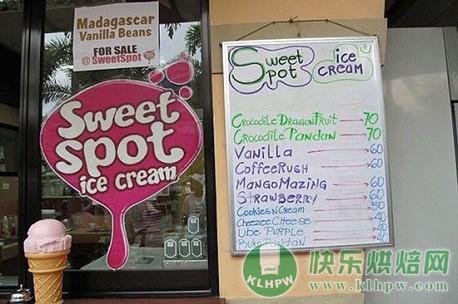 Madagascar
Vanilla Beans
FOR SALE
@ SweetSpot
Sweet
spot
ice cream
Sweet
Spot
ice
CREAM
CROCODILE DRAGONFRUIT 70
CROCODILE PANDAN 70
VANILLA 60
COFFEERUSH 60
MANGOMAZING 60
STRAWBERRY 60
COOKIES N CREAM 50
CHEEZEE CHEESE
UBE PURPLE
KLHPW
快乐烘焙网
www.klhpw.com